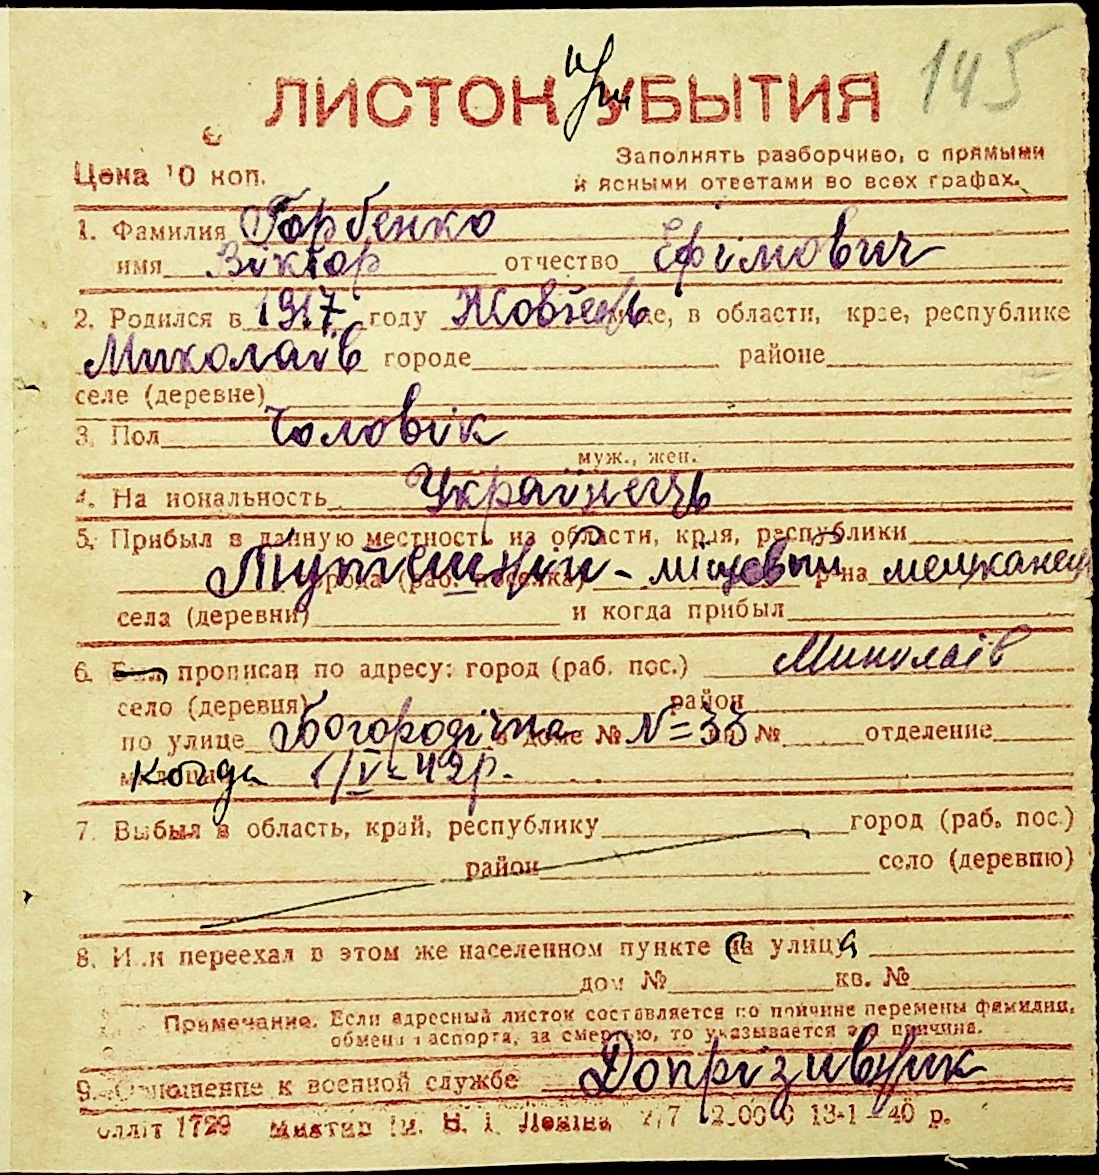 145
ЛИСТОН УБЫТИЯ
Цена 10 коп.
Заполнять разборчиво, с прямыми
и ясными ответами во всех графах.
1. Фамилия Горбенко
имя Віктор отчество Ефімович
2. Родился в 1917 году Жовтець, в области, крае, республике
Миколаїв городе районе
селе (деревне)
3. Пол Чоловік
муж., жен.
4. Национальность Українець
5. Прибыл в данную местность из области, края, республики
Тутешній - місцевий р-на мешканець
села (деревни) и когда прибыл
6. Был прописан по адресу: город (раб. пос.) Миколаїв
село (деревня) район
по улице Богородічна в доме № N=33 кв. № отделение
милиции Когда 1/IV-42р.
7. Выбыл в область, край, республику город (раб. пос.)
район село (деревню)
8. Или переехал в этом же населенном пункте на улицу
дом № кв. №
Примечание. Если адресный листок составляется по причине перемены фамилии,
обмена паспорта, за смертью, то указывается эта причина.
9. Отношение к военной службе Допрізивнік
1729 ім. В. І. Леніна 13-1-40 р.